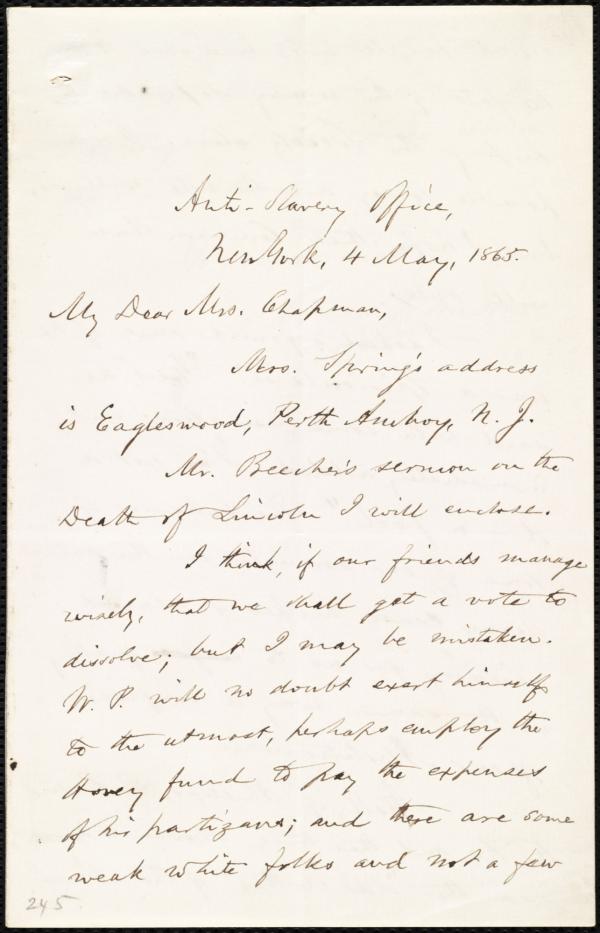 Anti-Slavery Office,
New York, 4 May, 1865.
My Dear Mrs. Chapman,
Mrs. Spring's address
is Eagleswood, Perth Amboy, N. J.
Mr. Beecher's sermon on the
Death of Lincoln I will enclose.
I think, if our friends manage
wisely, that we shall get a vote to
dissolve; but I may be mistaken.
W. P. will no doubt exert himself
to the utmost, perhaps employ the
Hovey fund to pay the expenses
of his partizans; and there are some
weak white folks and not a few
245